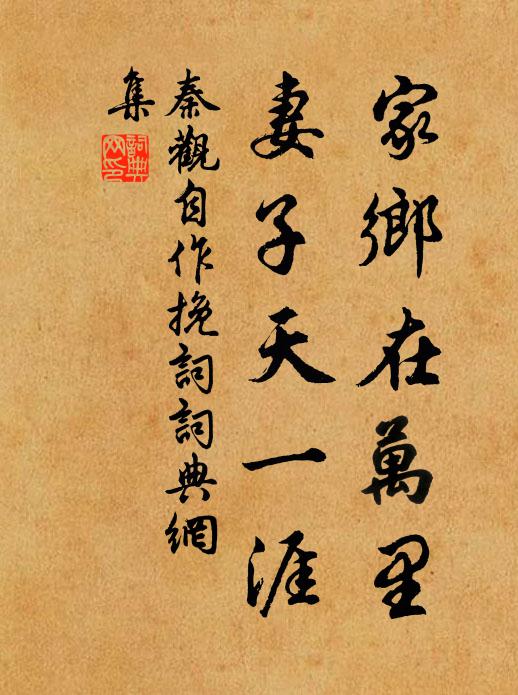 家鄉在萬里
妻子天一涯
秦觀自作挽詞詞典網
集
詞典
网印